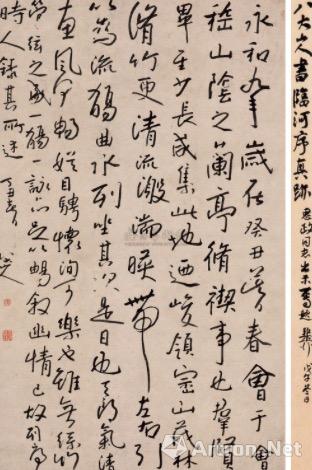 八大山人書臨河序真跡
永和九年歲在癸丑暮春會于會
稽山陰之蘭亭脩禊事也羣賢
畢至少長咸集此地迺峻領崇山茂林
脩竹更清流激湍暎帶左右引
以為流觴曲水列坐其次是日也天朗氣清
惠風和暢娛目騁懷洵可樂也雖無絲竹
管弦之盛一觴一詠亦足以暢敘幽情已故列序
時人錄其所述
Artron.Net